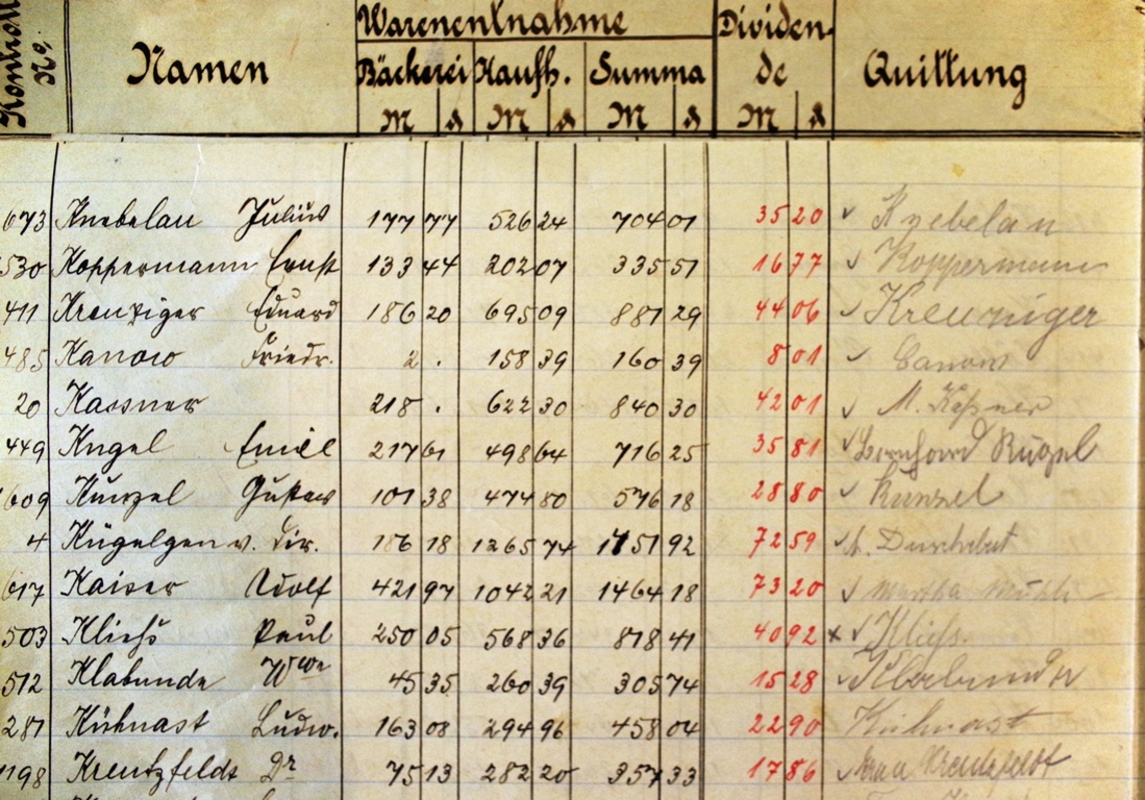 Kontroll No. Namen Warenentnahme Dividende Quittung
Bäckerei Kaufh. Summa
M ₰ M ₰ M ₰ M ₰
673 Knebelau Julius 177 77 526 24 704 01 35 20 Knebelau
530 Koppermann Ernst 133 44 202 07 335 51 16 77 Koppermann
411 Kreuziger Eduard 186 20 695 09 881 29 44 06 Kreuziger
485 Kanow Friedr. 2 . 158 39 160 39 8 01 Canow
20 Kassner 218 . 622 30 840 30 42 01 M. Kaßner
449 Kugel Emil 217 61 498 64 716 25 35 81 Bernhard Kugel
609 Kunzel Gustav 101 38 474 80 576 18 28 80 Kunzel
4 Kügelgen v. Dir. 186 18 1265 74 1451 92 72 59
617 Kaiser Adolf 421 97 1042 21 1464 18 73 20 Martha
503 Kliehs Paul 250 05 568 36 818 41 40 92 Kliehs
512 Klabunde Wwe 45 35 260 39 305 74 15 28 Klabunde
281 Kühnast Ludw. 163 08 294 96 458 04 22 90 Kühnast
1198 Kreutzfeldt Dr 75 13 282 20 357 33 17 86 Kreutzfeldt